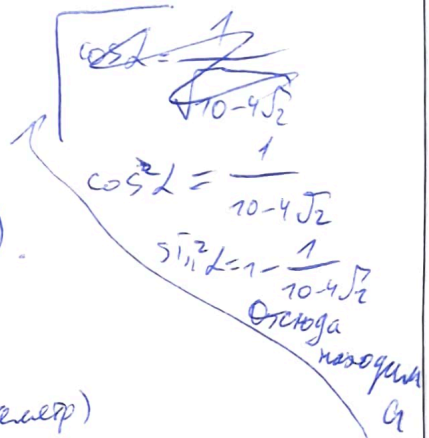 cos α = 1/√(10-4√2)
cos²α = 1/(10-4√2)
sin²α = 1 - 1/(10-4√2)
Отсюда
находим
a